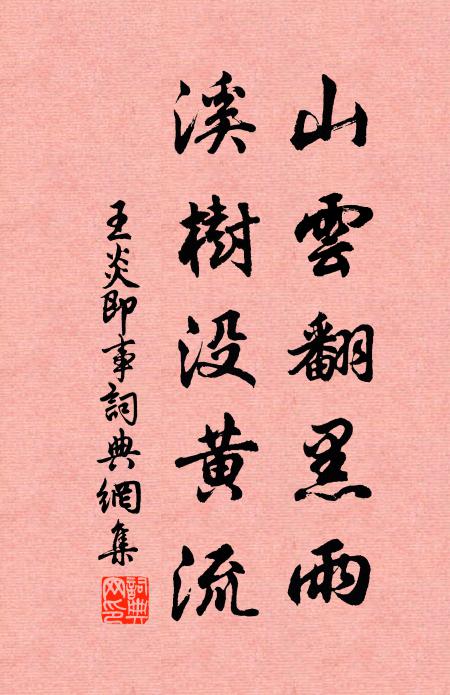 山雲翻黑雨
溪樹没黄流
王炎即事詞典網集
詞典
网印